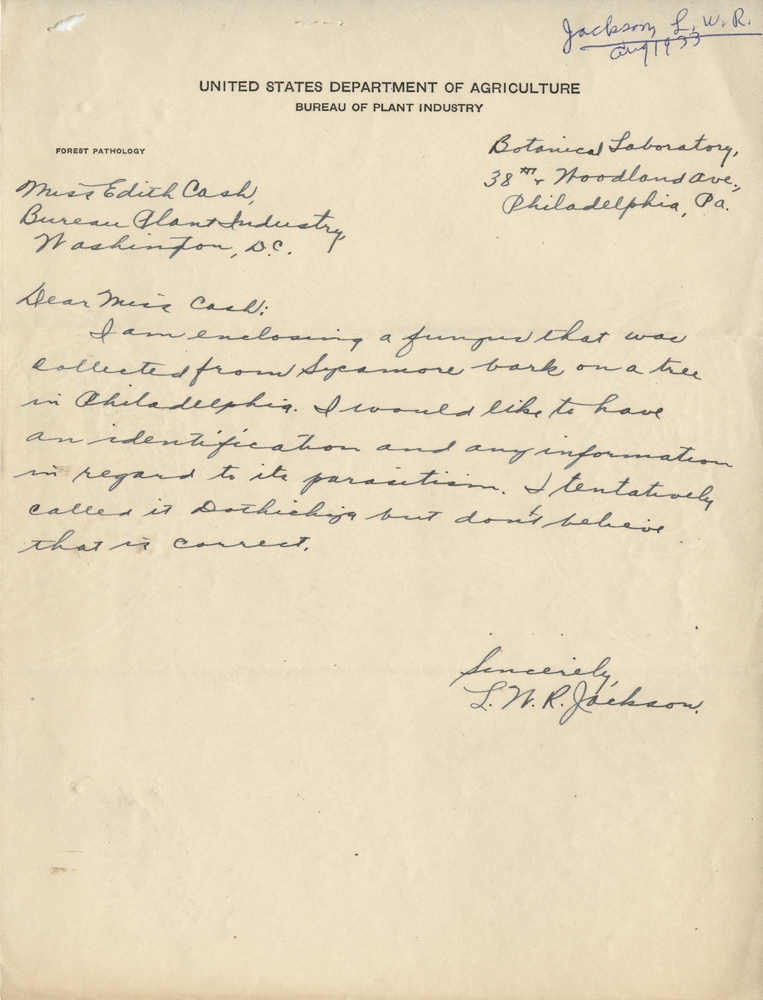 Jackson, L. W. R.
Aug 1933
UNITED STATES DEPARTMENT OF AGRICULTURE
BUREAU OF PLANT INDUSTRY
FOREST PATHOLOGY
Botanical Laboratory,
38th & Woodland Ave.,
Philadelphia, Pa.
Miss Edith Cash,
Bureau Plant Industry,
Washington, D.C.
Dear Miss Cash:
I am enclosing a fungus that was
collected from Sycamore bark on a tree
in Philadelphia. I would like to have
an identification and any information
in regard to its parasitism. I tentatively
called it Dothichiza but don't believe
that is correct.
Sincerely,
L. W. R. Jackson.